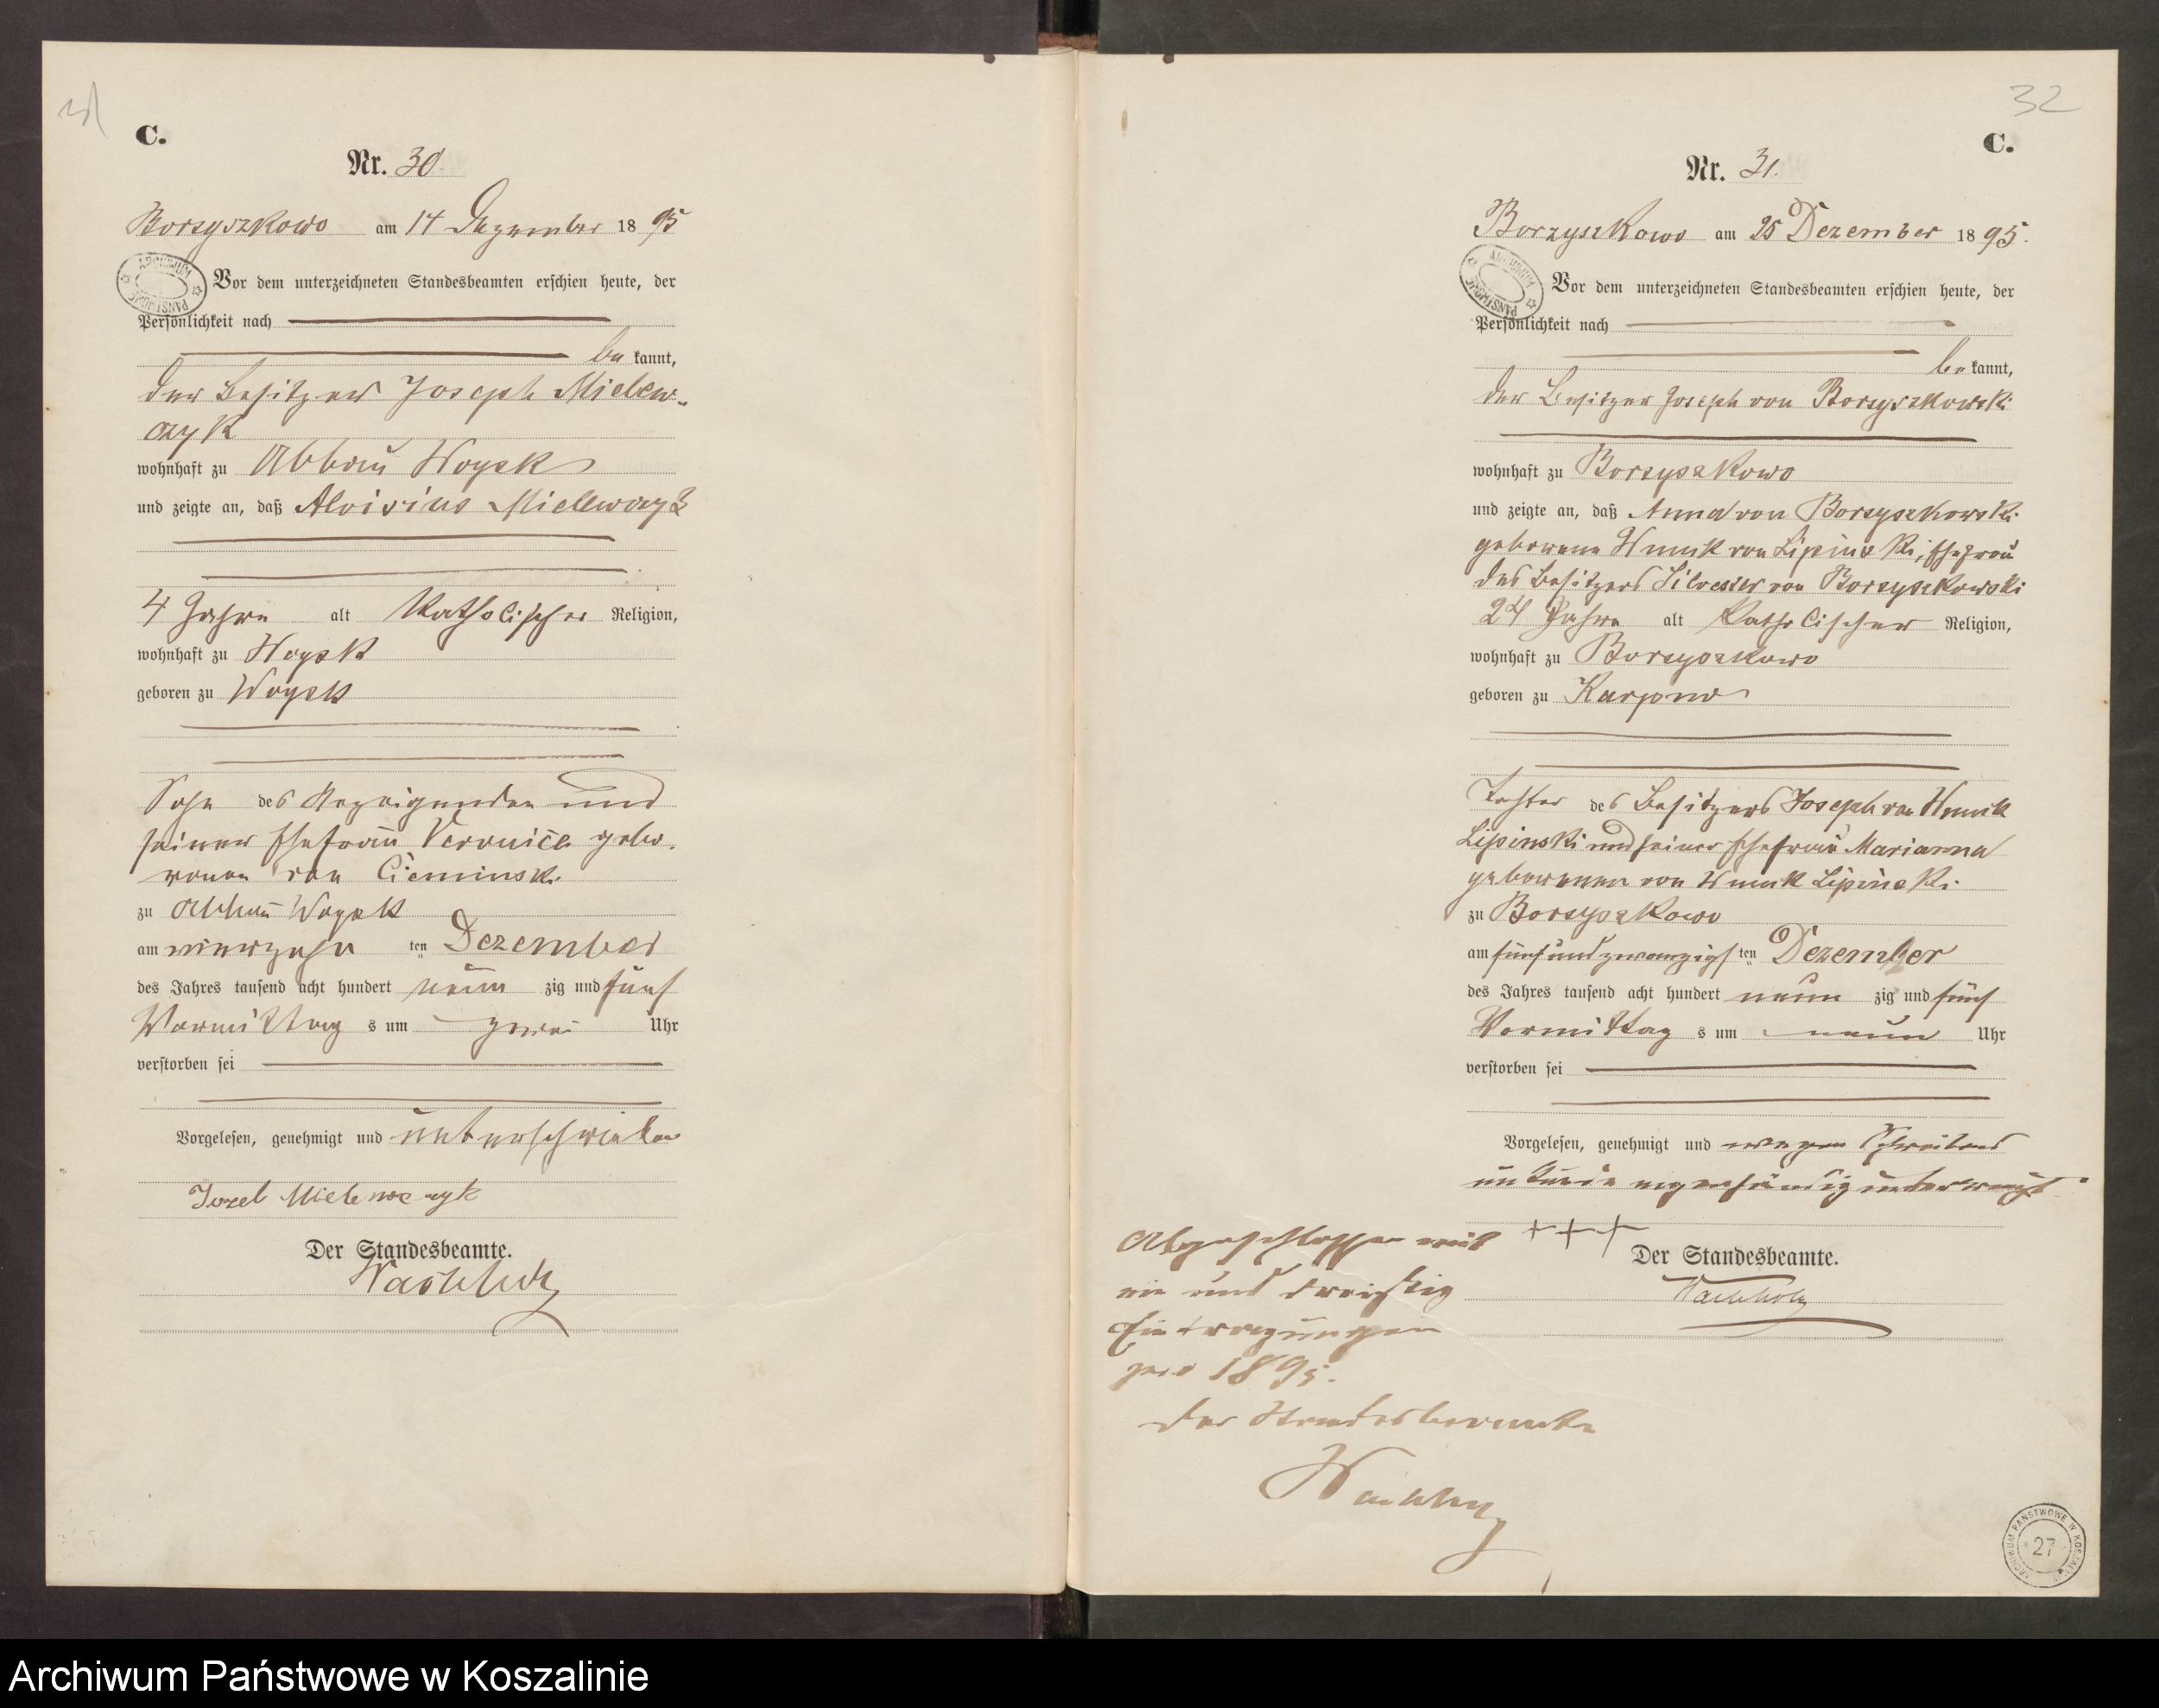 C.
Nr. 30.
Borzyszkowo am 14 Dezember 1895
Vor dem unterzeichneten Standesbeamten erschien heute, der
Persönlichkeit nach
be kannt,
der Besitzer Joseph Mielew-
czyk
wohnhaft zu Abbau Woysk
und zeigte an, daß Aloisius Mielewczyk
4 Jahre alt katholischer Religion,
wohnhaft zu Woysk
geboren zu Woysk
Sohn des Anzeigenden und
seiner Ehefrau Veronica gebo-
renen von Cieminski
zu Abbau Woysk
am vierzehn ten Dezember
des Jahres tausend acht hundert neun zig und fünf
Vormittag s um zwei Uhr
verstorben sei
Vorgelesen, genehmigt und unterschrieben
Jozef Mielewczyk
Der Standesbeamte.
Wachholz
32
C.
Nr. 31.
Borzyszkowo am 25 Dezember 1895.
Vor dem unterzeichneten Standesbeamten erschien heute, der
Persönlichkeit nach
be kannt,
der Besitzer Joseph von Borzyszkowski
wohnhaft zu Borzyszkowo
und zeigte an, daß Anna von Borzyszkowski
geborene Wnuk von Lipinski, Ehefrau
des Besitzers Silvester von Borzyszkowski
24 Jahre alt katholischer Religion,
wohnhaft zu Borzyszkowo
geboren zu Karpno
Tochter des Besitzers Joseph von Wnuk
Lipinski und seiner Ehefrau Marianna
geborenen von Wnuk Lipinski
zu Borzyszkowo
am fünfundzwanzigs ten Dezember
des Jahres tausend acht hundert neun zig und fünf
Vormittag s um neun Uhr
verstorben sei
Vorgelesen, genehmigt und wegen Schreibens
unkunde eigenhändig unterkreuzt.
+++
Der Standesbeamte.
Wachholz
Abgeschlossen mit
ein und dreißig
Eintragungen
pro 1895.
Der Standesbeamte
Wachholz
ARCHIWUM PAŃSTWOWE W KOSZALINIE
27
Archiwum Państwowe w Koszalinie